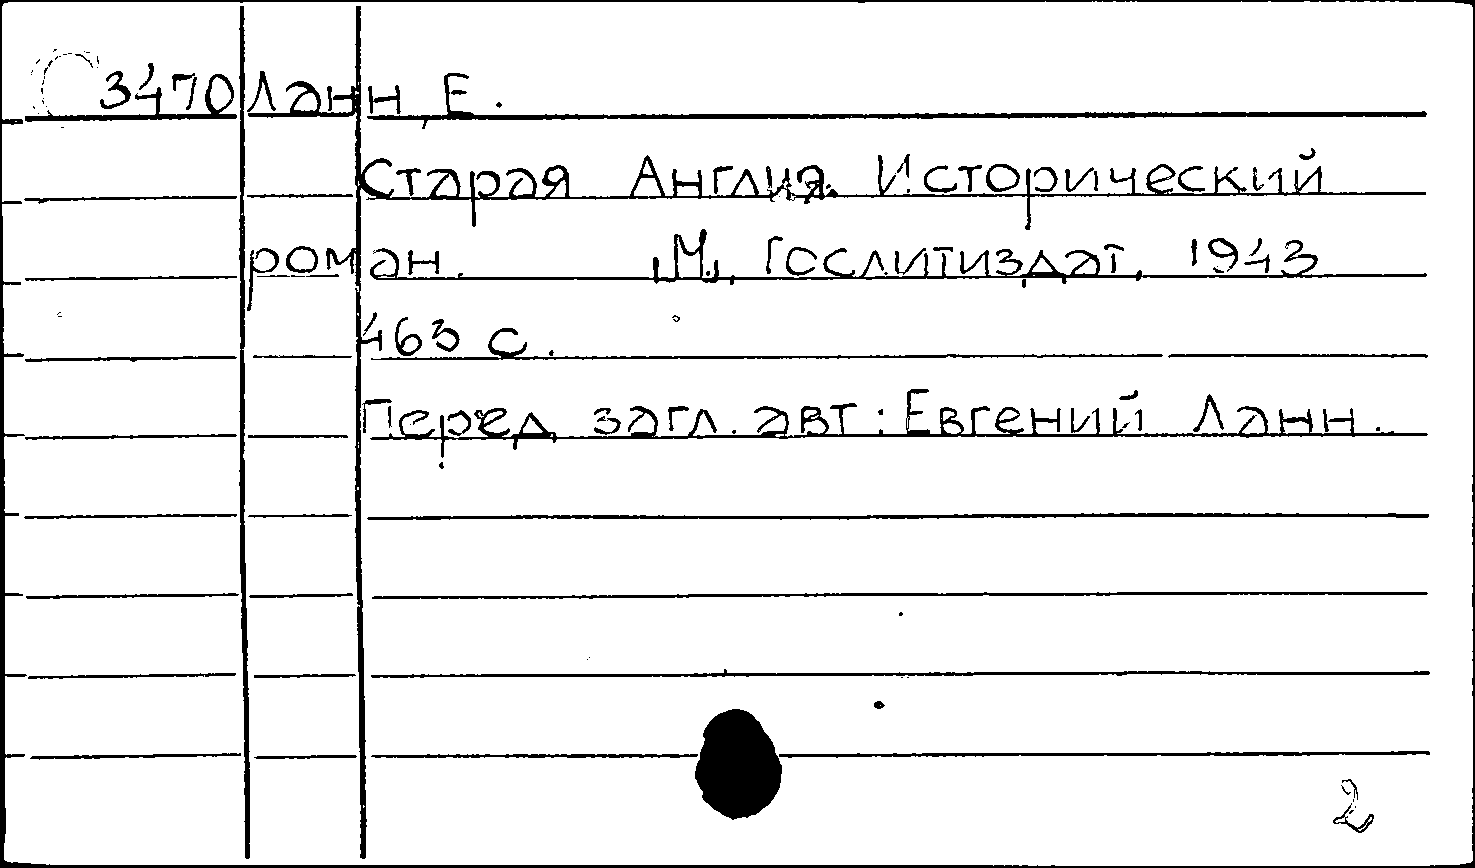 С3470 Ланн, Е.
Старая Англия. Исторический
роман. М., Гослитиздат, 1943
463 с.
Перед загл. авт: Евгений Ланн.
2